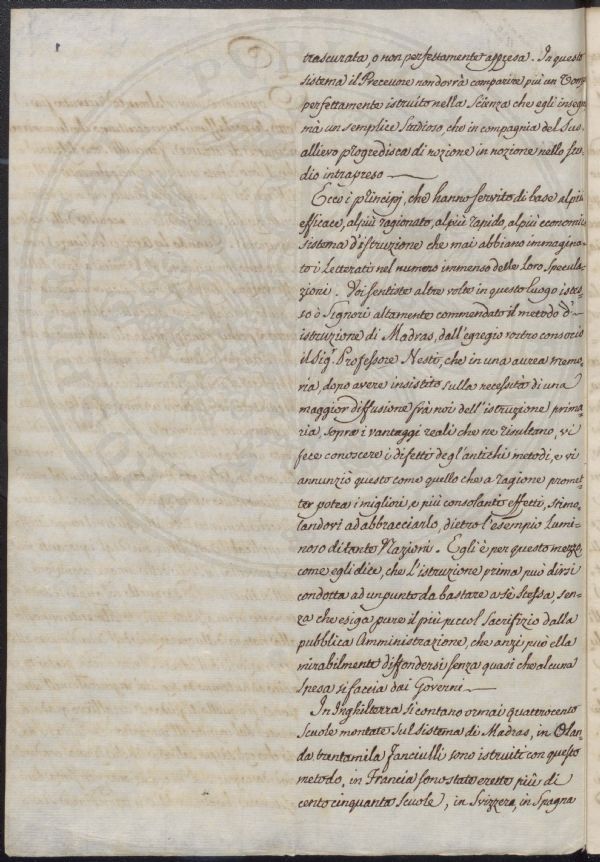 trascurata, o non perfettamente appresa. In questo
sistema il Precettore non dovrà comparire più un Uomo
perfettamente istruito nella Scienza che egli insegna
mà un semplice Studioso, che in compagnia del Suo
allievo progredisca di nozione in nozione nello stu-
dio intrapreso —
Ecco i principj, che hanno servito di base al più
efficace, al più ragionato, al più rapido, al più economico
sistema d'istruzione che mai abbiano immagina-
to i Letterati nel numero immenso delle Loro Specula-
zioni. Voi sentiste altre volte in questo luogo istes-
so ò Signori altamente commendato il metodo d'
istruzione di Madras, dall'egregio vostro consocio
il Sig.r Professore Nesti, che in una aurea memo-
ria, dopo avere insistito sulla necessità di una
maggior diffusione frà noi dell'istruzione prima-
ria, sopra i vantaggi reali che ne risultano, vi
fece conoscere i difetti degl'antichi metodi, e vi
annunziò questo come quello che a ragione promet-
ter potea i migliori, e più consolanti effetti, stimo-
landovi ad abbracciarlo, dietro l'esempio Lumi-
noso di tante Nazioni. Egli è per questo mezzo,
come egli dice, che L'istruzione prima può dirsi
condotta ad un punto da bastare a sè stessa, sen-
za che esiga pure il più piccol Sacrifizio dalla
pubblica Amministrazione, che anzi può ella
mirabilmente diffondersi senza quasi che alcuna
spesa si faccia dai Governi —
In Inghilterra si contano ormai quattrocento
Scuole montate sul sistema di Madras, in Olan-
da trentamila fanciulli sono istruiti con questo
metodo, in Francia sono state erette più di
cento cinquanta Scuole, in Svizzera, in Spagna